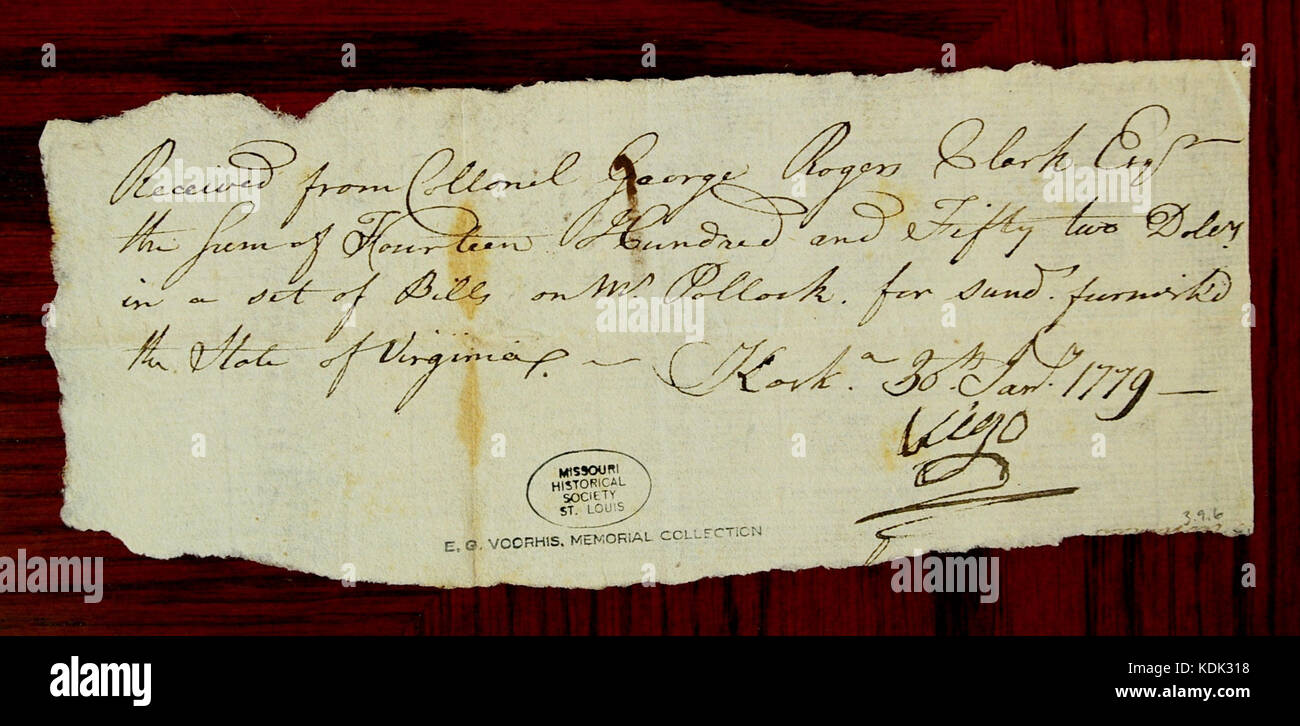 Received from Collonel George Rogers Clark Esqr
the Sum of Fourteen Hundred and Fifty two Doler
in a set of Bills on Mr Pollock. for sund. furnish'd
the State of Virginia. — Kask.a 30th Janr. 1779 —
Vigo
MISSOURI
HISTORICAL
SOCIETY
ST. LOUIS
E. G. VOORHIS, MEMORIAL COLLECTION
3.9.6
a alamy stock photo
alamy
Image ID: KDK318
www.alamy.com